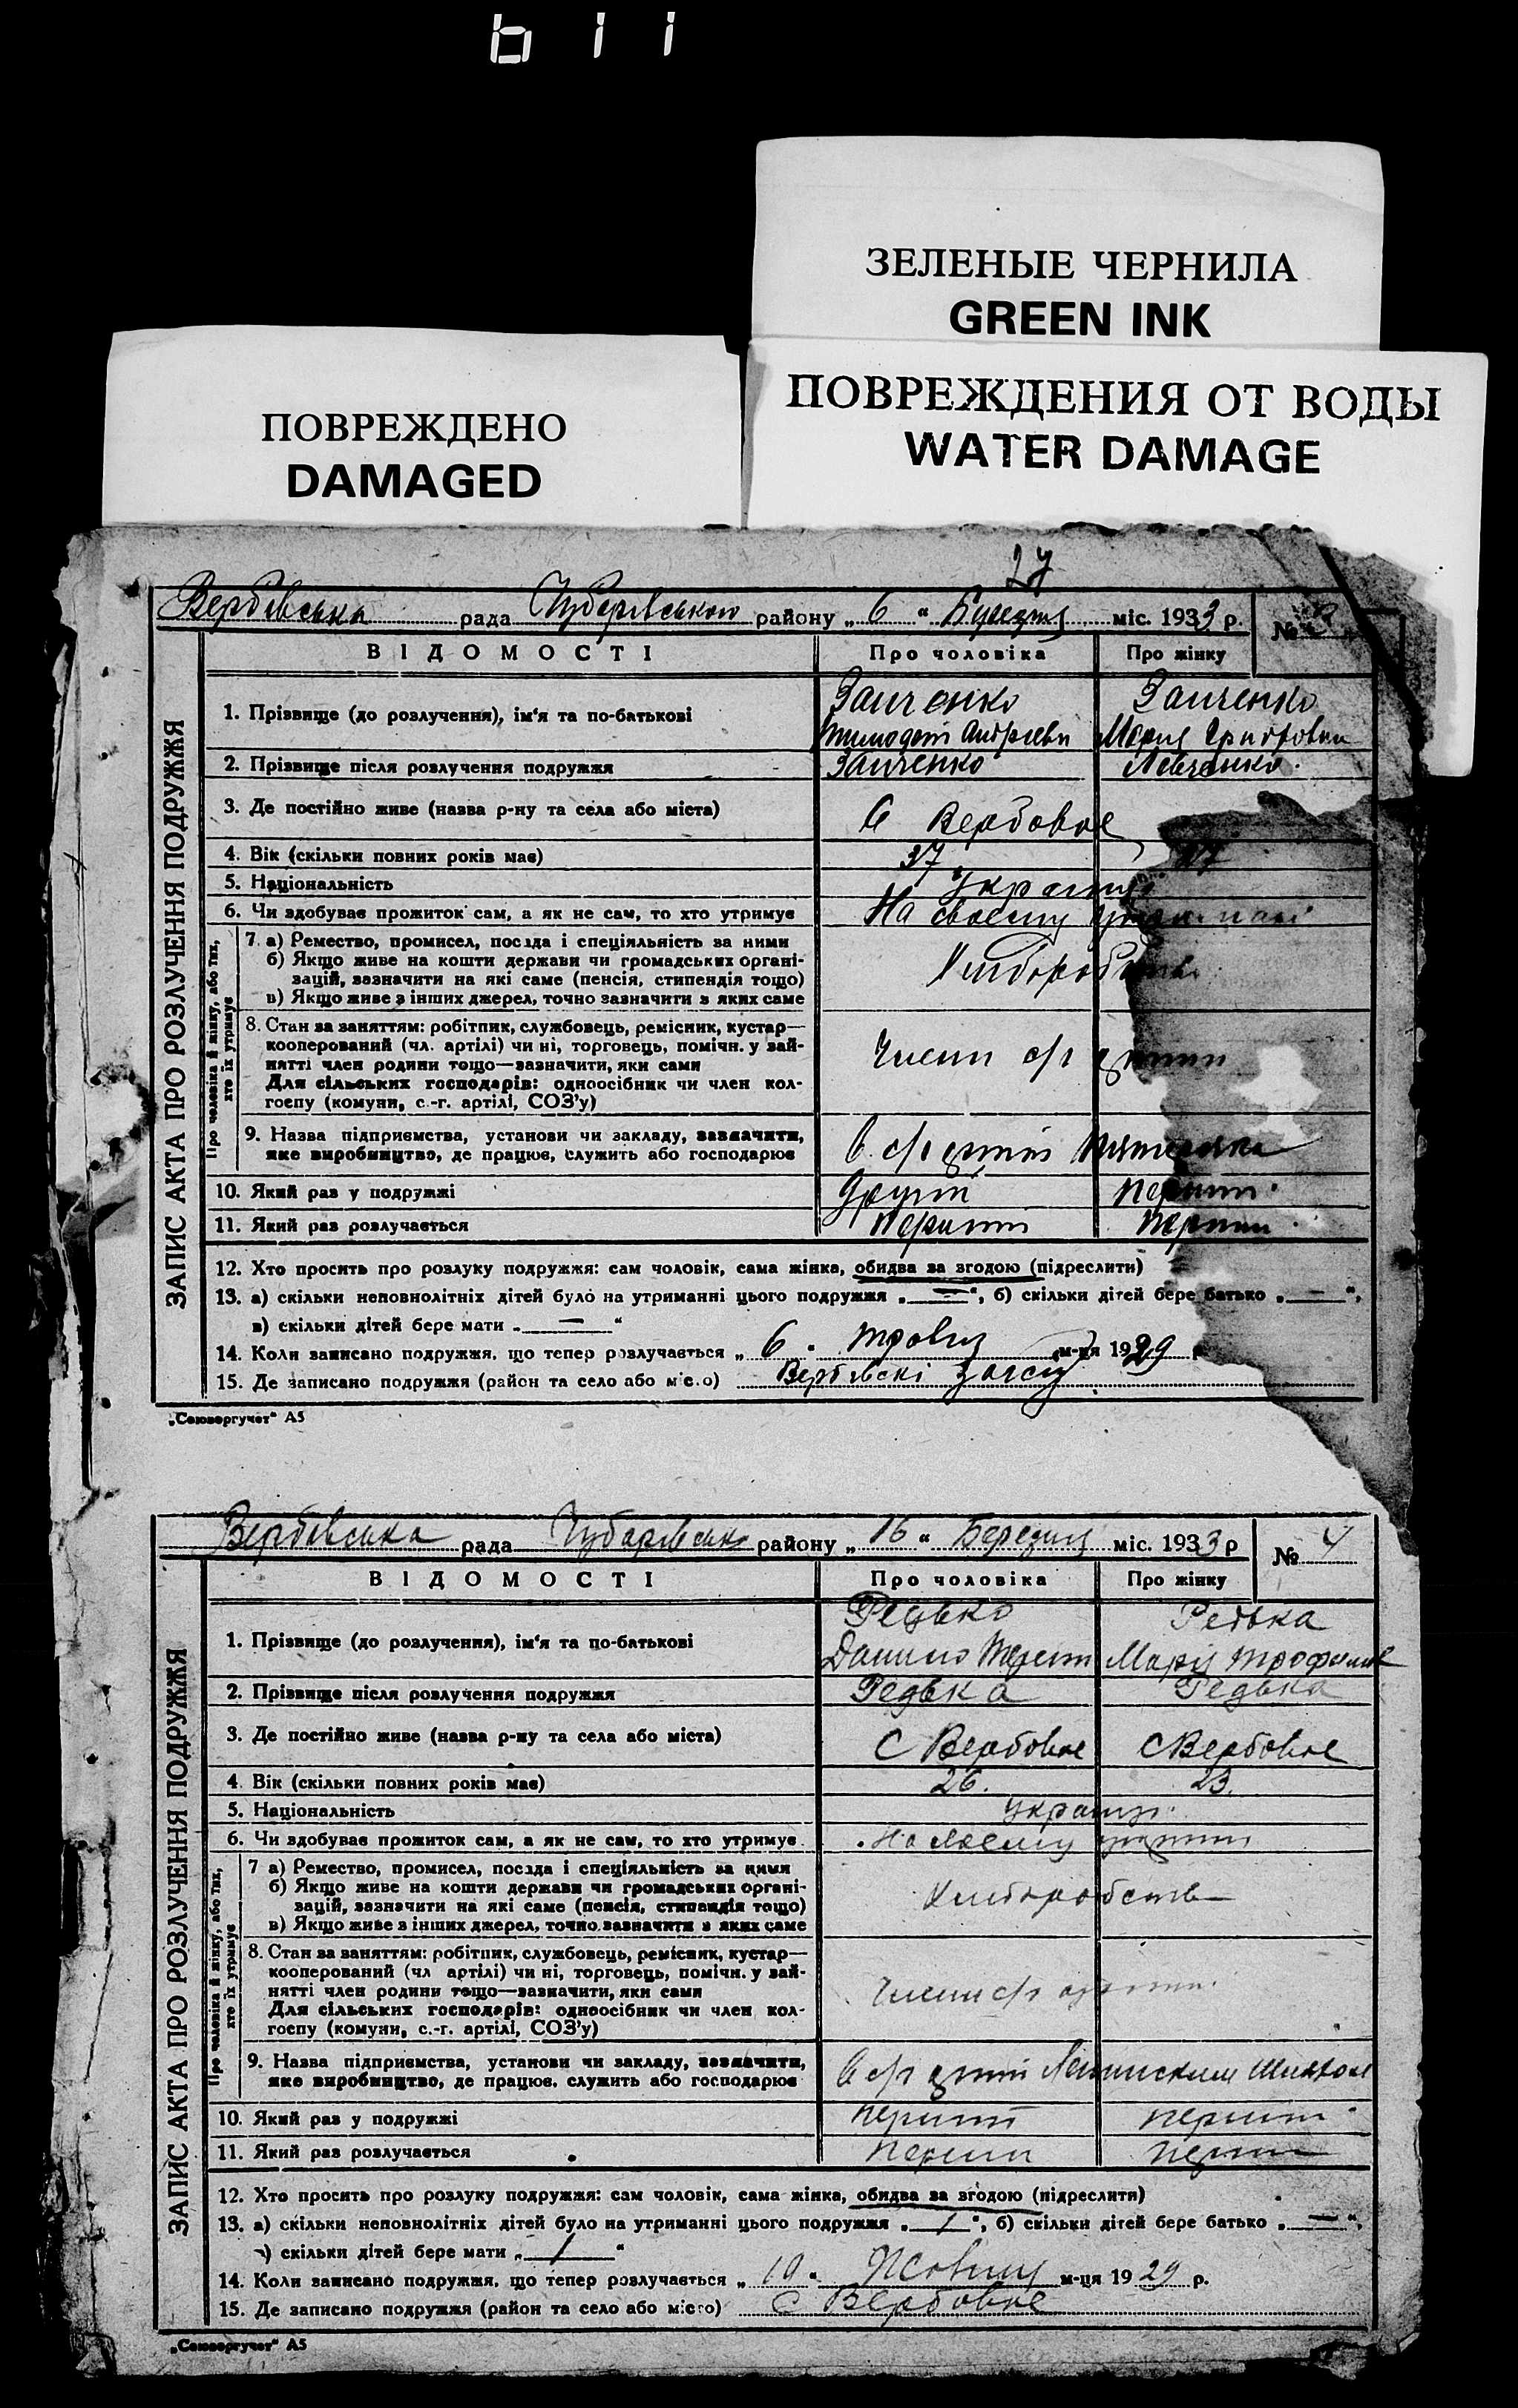 ЗЕЛЕНЫЕ ЧЕРНИЛА
GREEN INK
ПОВРЕЖДЕНИЯ ОТ ВОДЫ
WATER DAMAGE
ПОВРЕЖДЕНО
DAMAGED
27
Вербівська рада Чубарівського району „ 6 “ Березня міс. 1933 р. №
ВІДОМОСТІ Про чоловіка Про жінку
ЗАПИС АКТА ПРО РОЗЛУЧЕННЯ ПОДРУЖЖЯ
1. Прізвище (до розлучення), ім'я та по-батькові Заиченко Заиченко
Тимофій Андрієви Мария
2. Прізвище після розлучення подружжя Заиченко Левченко
3. Де постійно живе (назва р-ну та села або міста) С Вербовое
4. Вік (скільки повних років має) 37
5. Національність
6. Чи здобуває прожиток сам, а як не сам, то хто утримує На своєму
Про чоловіка й жінку, або тих, хто їх утримує
7. а) Ремество, промисел, посада і спеціяльність за ними
б) Якщо живе на кошти держави чи громадських органі-
зацій, зазначити на які саме (пенсія, стипендія тощо)
в) Якщо живе з інших джерел, точно зазначити з яких саме
8. Стан за заняттям: робітник, службовець, ремісник, кустар—
кооперований (чл. артілі) чи ні, торговець, помічн. у зай-
нятті член родини тощо—зазначити, яки сами
Для сільських господарів: одноосібник чи член кол-
госпу (комуни, с.-г. артілі, СОЗ'у)
9. Назва підприємства, установи чи закладу, зазначити,
яке виробництво, де працює, служить або господарює
10. Який раз у подружжі Другий Перший
11. Який раз розлучається Перший Перший
12. Хто просить про розлуку подружжя: сам чоловік, сама жінка, обидва за згодою (підреслити)
13. а) скільки неповнолітніх дітей було на утриманні цього подружжя „ — “, б) скільки дітей бере батько „ — “,
в) скільки дітей бере мати „ — “
14. Коли записано подружжя, що тепер розлучається „ 6 “ Травня м-ця 1929 р
15. Де записано подружжя (район та село або місто) Вербівскі
„Союзоргучет“ А5
Вербівська рада Чубарівськ району „ 16 “ Березня міс. 1933 р № 4
ВІДОМОСТІ Про чоловіка Про жінку
ЗАПИС АКТА ПРО РОЗЛУЧЕННЯ ПОДРУЖЖЯ
1. Прізвище (до розлучення), ім'я та по-батькові Редько Редька
Данило Марія Трофимів
2. Прізвище після розлучення подружжя Редька Редька
3. Де постійно живе (назва р-ну та села або міста) С Вербовое С Вербовое
4. Вік (скільки повних років має) 26. 23.
5. Національність
6. Чи здобуває прожиток сам, а як не сам, то хто утримує
Про чоловіка й жінку, або тих, хто їх утримує
7 а) Ремество, промисел, посада і спеціяльність за ними
б) Якщо живе на кошти держави чи громадських органі-
зацій, зазначити на які саме (пенсія, стипендія тощо)
в) Якщо живе з інших джерел, точно зазначити з яких саме
8. Стан за заняттям: робітник, службовець, ремісник, кустар—
кооперований (чл артілі) чи ні, торговець, помічн. у зай-
нятті член родини тощо—зазначити, яки сами
Для сільських господарів: одноосібник чи член кол-
госпу (комуни, с.-г. артілі, СОЗ'у)
9. Назва підприємства, установи чи закладу, зазначити,
яке виробництво, де працює, служить або господарює
10. Який раз у подружжі перший перший
11. Який раз розлучається перший перший
12. Хто просить про розлуку подружжя: сам чоловік, сама жінка, обидва за згодою (підреслити)
13. а) скільки неповнолітніх дітей було на утриманні цього подружжя „ 1 “, б) скільки дітей бере батько „ — “,
) скільки дітей бере мати „ 1 “
14. Коли записано подружжя, що тепер розлучається „ 19 “ Жовтня м-ця 1929 р.
15. Де записано подружжя (район та село або місто) С Вербовое
„Союзоргучет“ А5